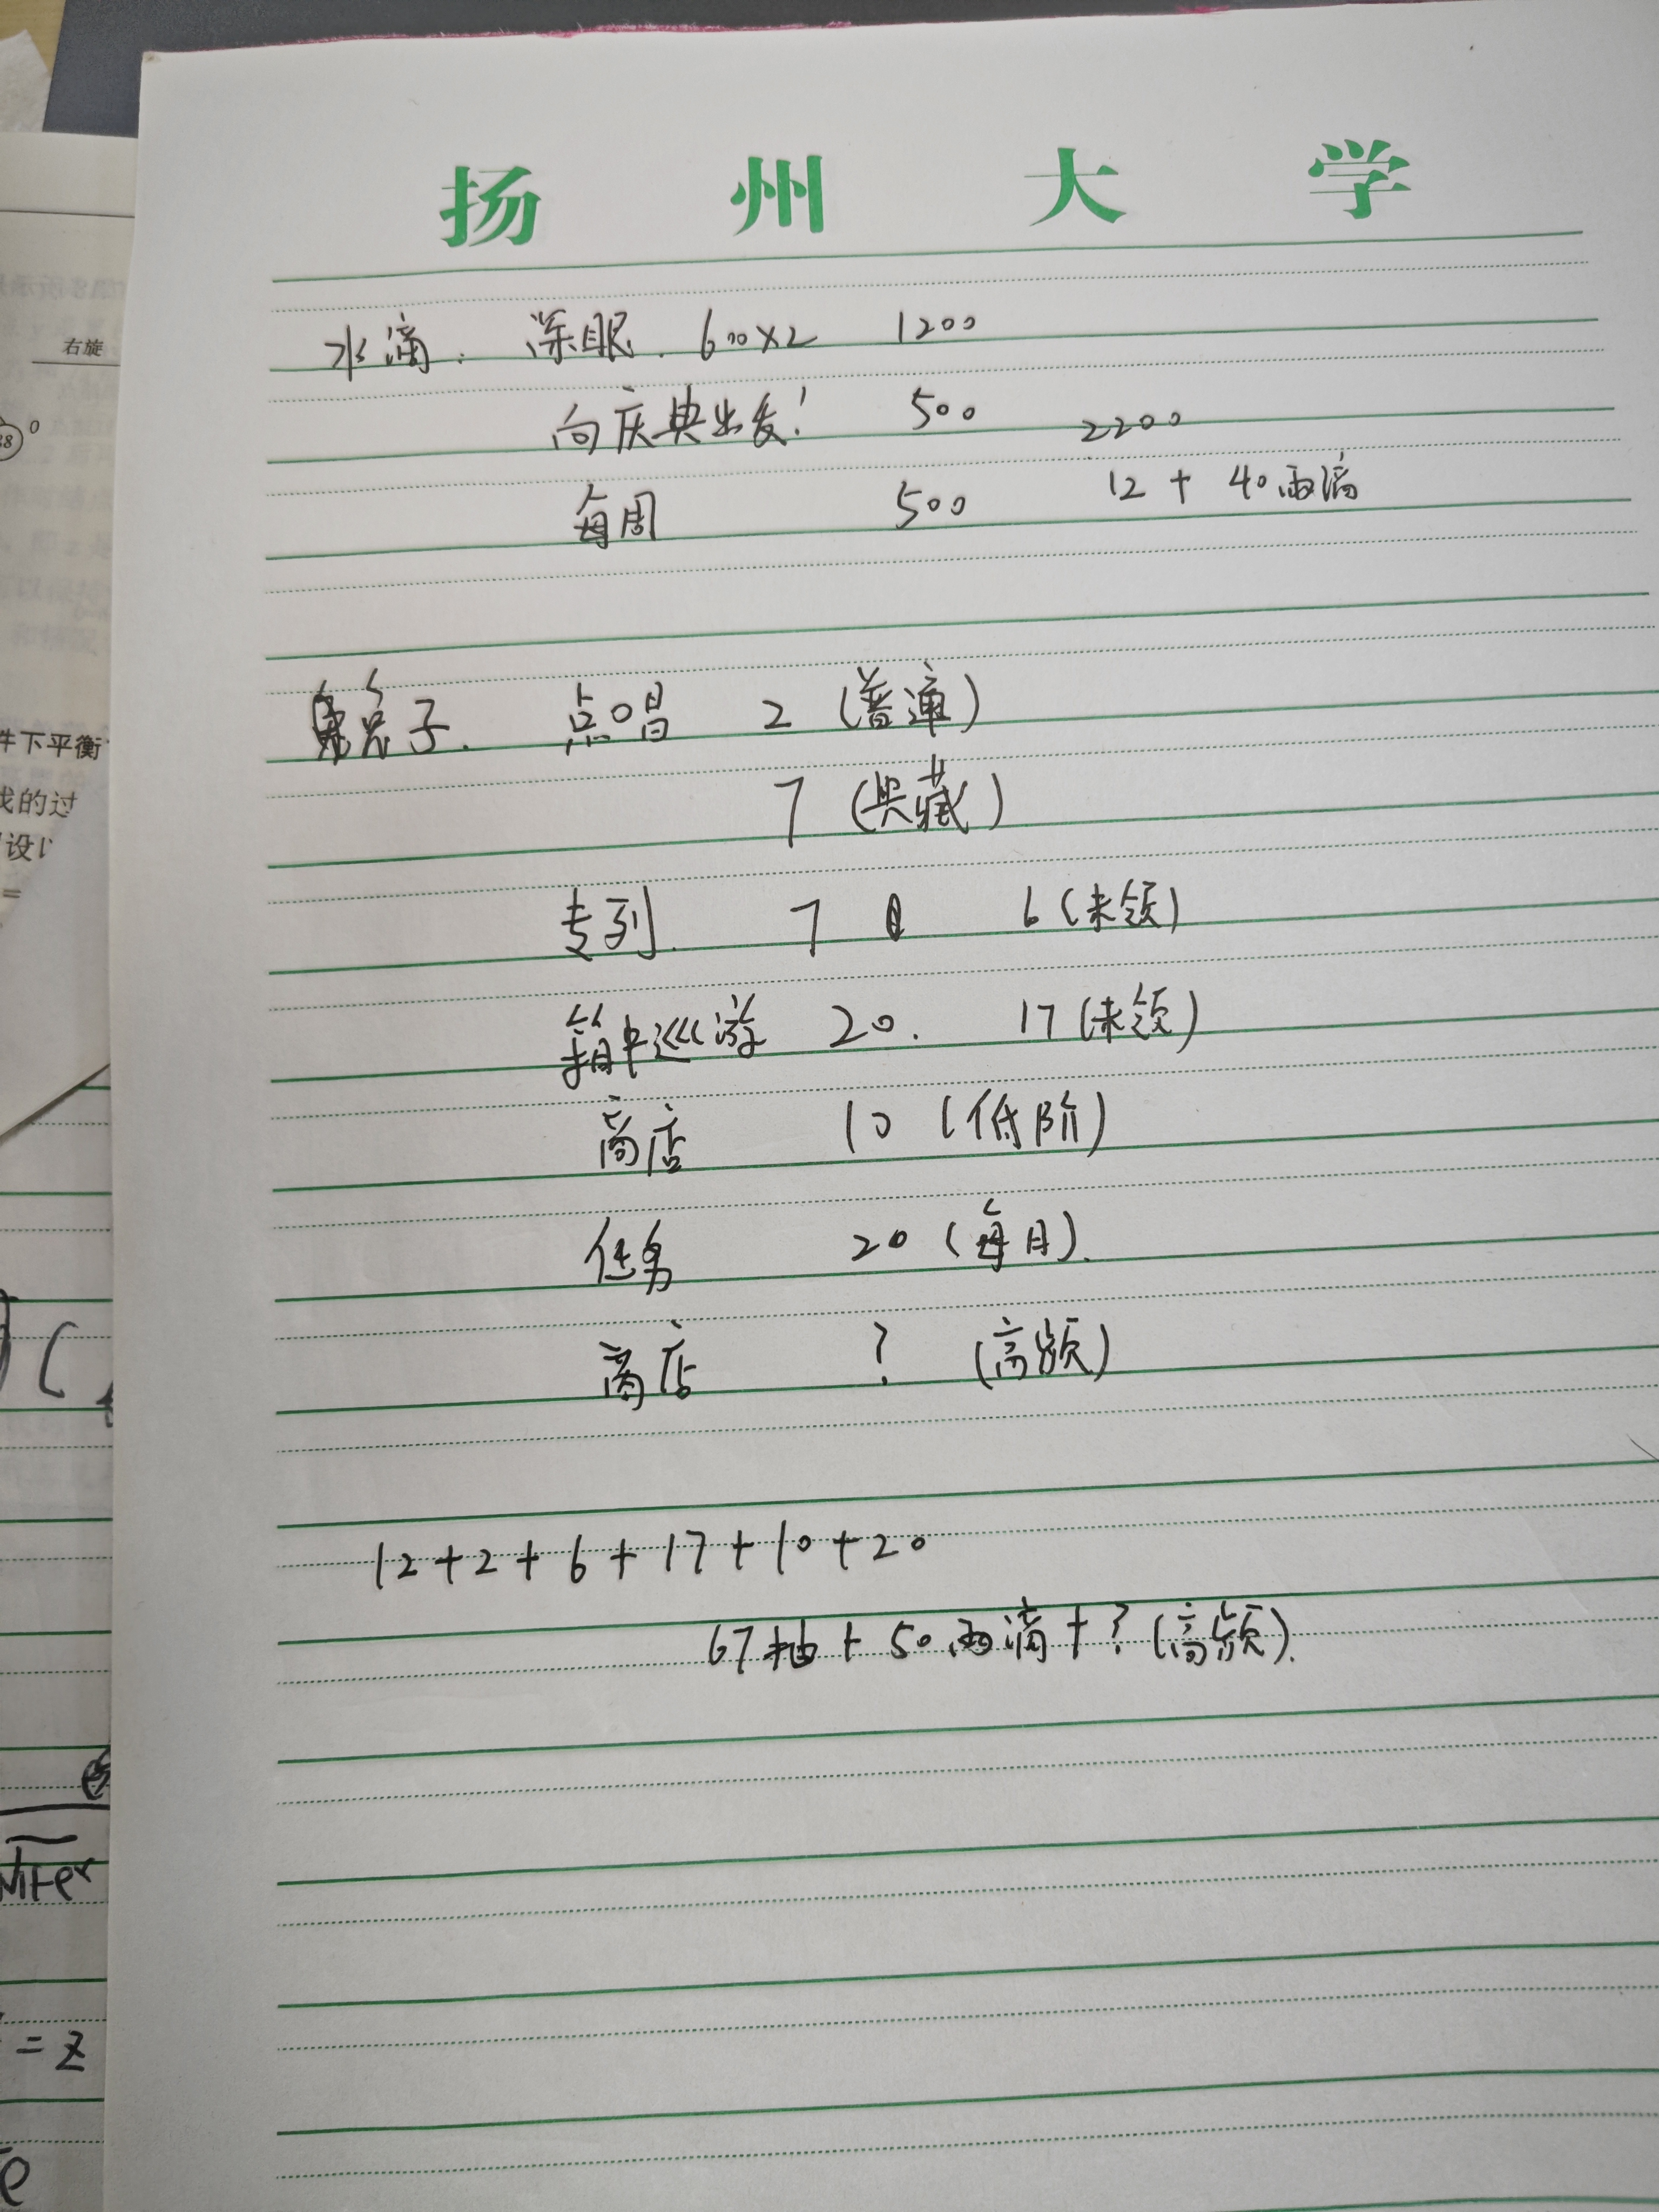 扬州大学
水滴: 深眠. 600×2 1200
向庆典出发! 500 2200
每周 500 12 + 40雨滴
点唱 2 (普通)
7 (典藏)
专列. 7 6 (未领)
箱中巡游 20. 17 (未领)
商店 10 (低阶)
任务 20 (每日).
商店 ? (高频)
12+2+6+17+10+20
67抽+50雨滴+?(高频).
右旋
0
件下平衡
戏的过
设
=
= z